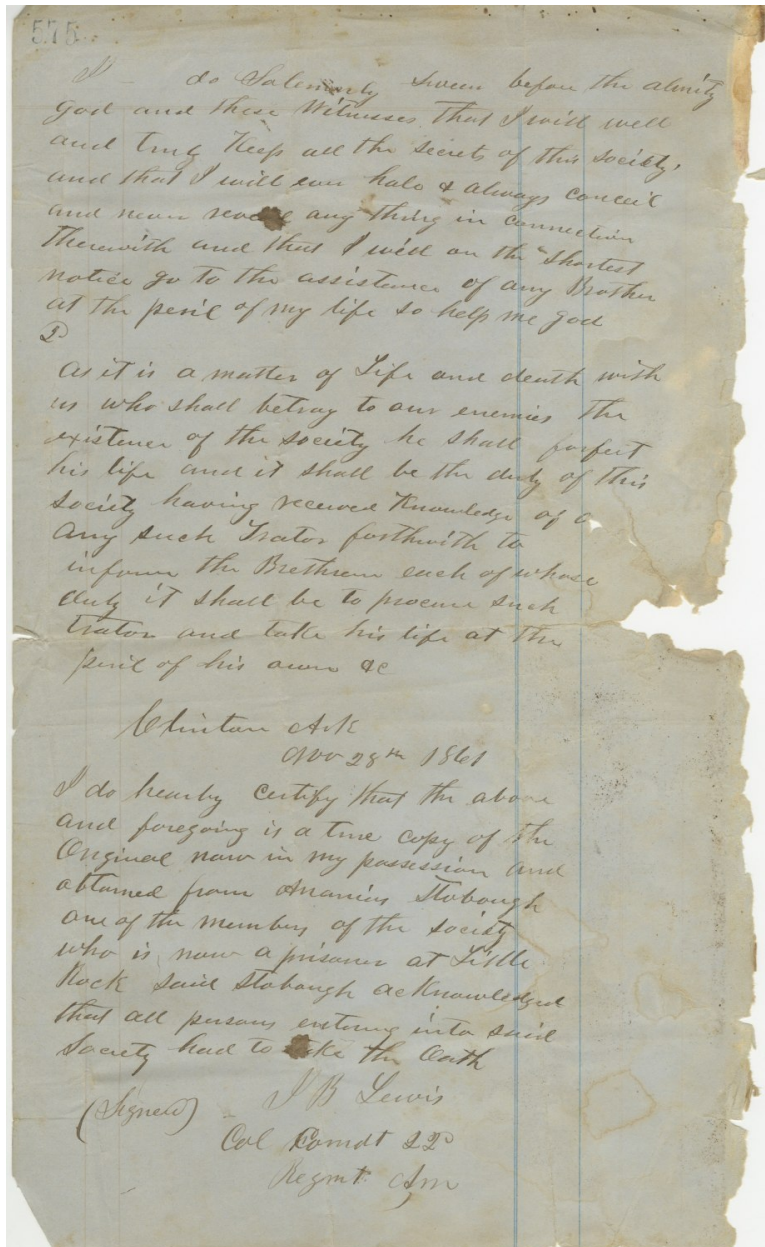 575
I — do Solemnly Swear before the almity
god and these Witnesses that I will well
and truly Keep all the secrets of this society,
and that I will ever halo & always conceil
and never reveal any thing in connection
therewith and that I will on the Shortest
notice go to the assistance of any Brother
at the peril of my life so help me god
2
As it is a matter of Life and death with
us who shall betray to our enemies the
existence of the society he shall forfeit
his life and it shall be the duty of this
Society having received Knowledge of a
any such Trator forthwith to
inform the Brethren each of whose
duty it shall be to procure such
trator and take his life at the
peril of his own &c
Clinton Ark
Nov 28th 1861
I do hearby certify that the above
and foregoing is a true copy of the
Original now in my possession and
obtained from Ananias Stobaugh
one of the members of the society
who is now a prisoner at Little
Rock said Stobaugh acKnowledged
that all persons entering into said
Society had to take the Oath
(Signed) J B Lewis
Col Comdt
Regmt